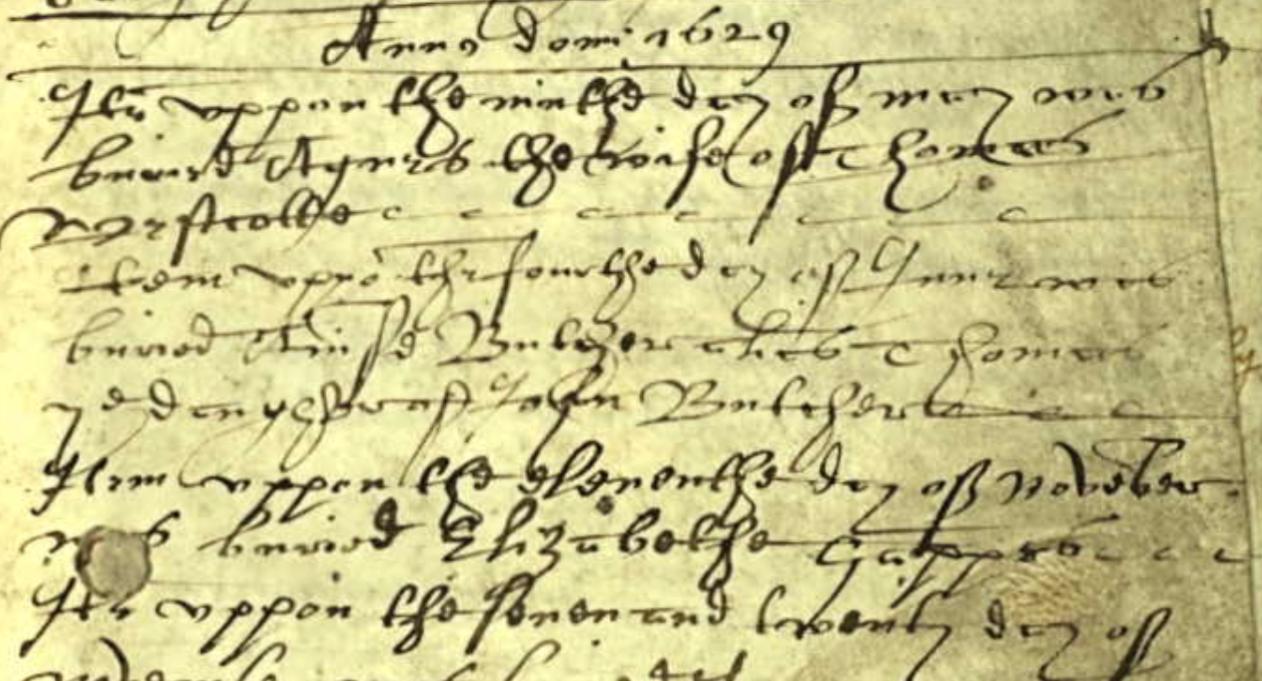 Anno domi 1629
Itm uppon the ninthe day of may was
buried Agnes the wife of Thomas
Westcotte
Item uppō the fourthe day of June was
buried Butcher alias Thomas
ye daughter of John Butcher
Item uppon the eleventhe day of Novēber
was buried Elizabethe Gapper
Itm uppon the seven and twenty day of